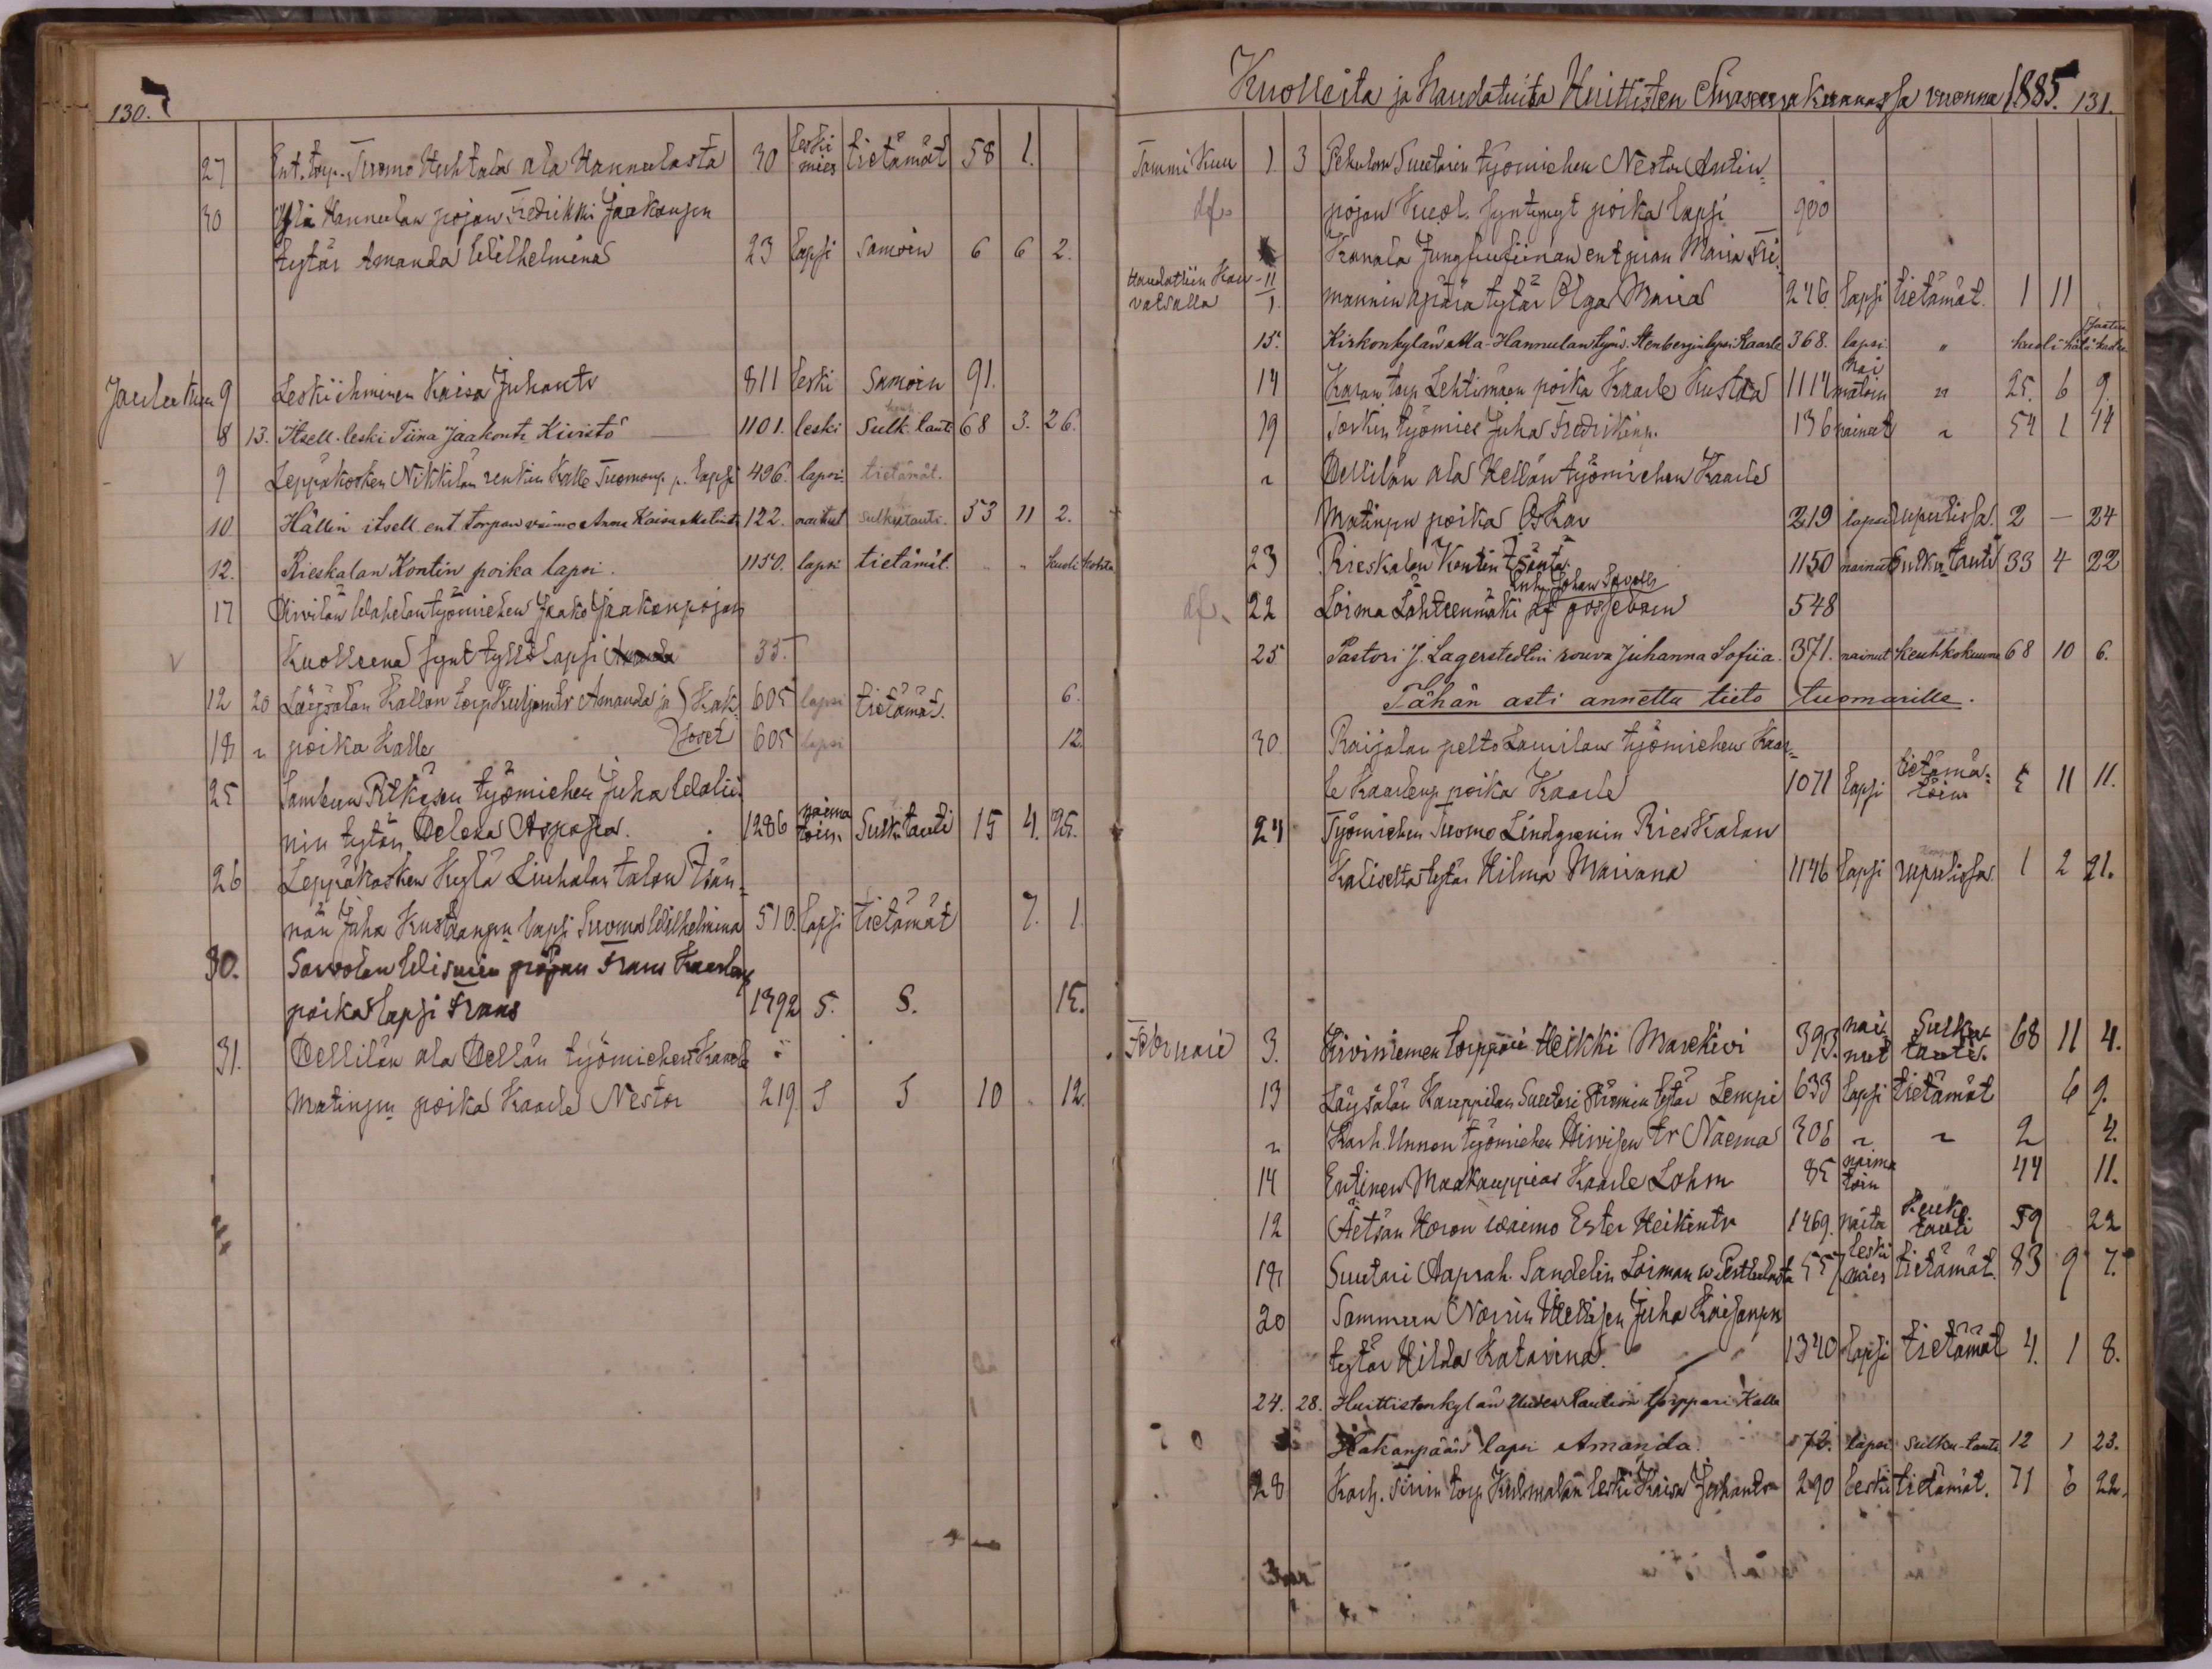 130.
27 Ent. torp. Tuomo Huhtala ala Hannulasta 30 leski mies tietämät 58 1.
30 Ylä Hannulan pojan Fredrikki Jaakonpn
tytär Amanda Wilhelmina 23 lapsi samoin 6 6 2.
Joulukuu 9 Leskiihminen Kaisa Juhantr 811 leski samoin 91.
8 13. Itsell. leski Tiina Jaakontr Kivistö 1101. leski Sulk. tauti 68 3. 26.
9 Leppäkosken Nikkilän renkin Kalle Tuomonp. p. lapsi 496. lapsi. tietämät.
10 Hällin itsell. ent. torpan vaimo Anna Kaisa Matintr 122. naitut sulkutauti. 53 11 2.
12. Rieskalan Kontin poika lapsi. 1150. lapsi tietämät. " " kuoli kohta
17 työmiehen Jaako Jaakonpojan
Kuolleena synt tyttö lapsi 35.
12 20 Läysälän Kallan torp. Amanda ja Kak- 605 lapsi tietämät. 6.
18 " poika Kalle soset 605 lapsi 12.
25 Sammun Pitkäsen työmiehen Juha
nin tytär Helena 1286 naima toin. Sulk tauti 15 4. 25.
26 Leppäkosken Kylä Liuhalan talon Isän-
nän Juha Kustaanpn lapsi Suoma Wilhelmina 510. lapsi tietämät 7. 1.
30. pojan Frans Kaarlenp
poika lapsi Frans 1392 S. S. 15.
31. Hellilän ala Hellän työmiehen Kaarle
Matinpn poika Kaarle Nestor 219 S S 10 . 12.
Kuolleita ja Haudatuita Huittisten Emäseurakunnassa vuonna 1885. 131.
Tammi Kuu 1. 3 Suutarin työmiehen Nestor Antin-
df. pojan Kuol. syntynyt poika lapsi 900
ent piian Maria Fri-
Haudattiin Kauvatsalla 11/1. mannin äpärä tytär Olga Maria 246. lapsi tietämät. 1 11
15. Kirkonkylän alla-Hannulan työm. Stenbergin lapsi Kaarle 368. lapsi. "
14 Karan torp Lehtimäen poika Kaarle Kustaa 1114 naimatoin " 25. 6 9.
19 työmies Juha Fredrikinp. 136 nainut " 54 1 14
" Hellilän ala Hellän työmiehen Kaarle
Matinpn poika Oskar 219 lapsi rupulissa. 2 — 24
23 Rieskalan Kontin Isäntä. 1150 nainut Sulku-tauti 33 4 22
df. 22 Loima Lähteenmäki df gossebarn 548
25 Pastori J. Lagerstedtin rouva Juhanna Sofiia. 371. nainut keuhkokuume 68 10 6.
Tähän asti annettu tieto tuomarille.
30. Raijalan pelto Laurilan työmiehen Kaar-
le Kaarlenp poika Kaarle 1071 lapsi tietämä-töin 5 11 11.
24 Työmiehen Tuomo Lindgrenin Rieskalan
Kaliselta tytär Hilma Mariana 1146 lapsi rupulissa. 1 2 21.
Februari 3. Kiviniemen torppari Heikki Marckivi 393. nainut Sulku tauti. 68 11 4.
13 Läysälän Karppilan Suutari Strömin tytär Lempi 633 lapsi tietämät 6 9.
" Karh. Unnon työmiehen Hirvisen tr Naema 306 " " 2 4.
14 Entinen Maakauppias Kaarle Lohm 85 naima toin 44 11.
12 Äetsän Horon waimo Ester Heikintr 1469. naitu Keuhko tauti 59 22
18 Suutari Aaprah. Sandelin Loiman w. Perttulasta 557 leski mies tietämät. 83 9 7.
20 Sammun Norrin Juha Kaisanpn
tytär Hilda Katarina. 1340 lapsi tietämät 4. 1 8.
24. 28. Huittistenkylän Uuden Raution torppari Kalle
Hakanpään lapsi Amanda. 72. lapsi sulku-tauti 12 1 23.
28 Karh. Sirin torp Kulmalan leski Kaisa Juhantr 290 leski tietämät. 71 6 22.